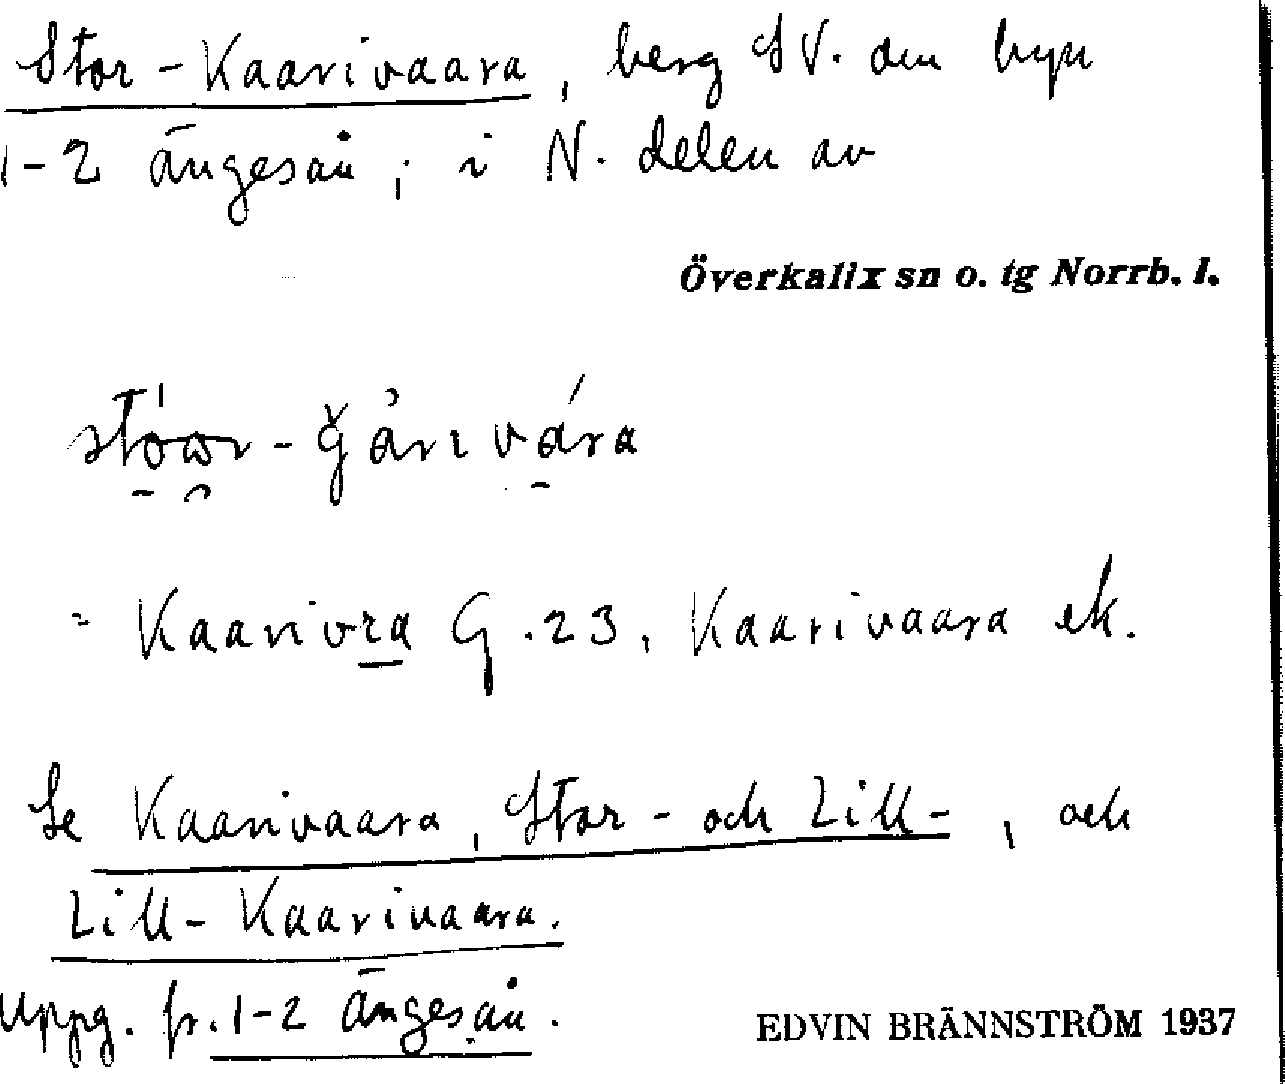 Stor-Kaarivaara, berg SV. om byn
1-2 Ängesån; i N. delen av
Överkalix sn o. tg Norrb. l.
= Kaarivra G.23, Kaarivaara ek.
Se Kaarivaara, Stor- och Lill-, och
Lill-Kaarivaara.
Uppg. fr. 1-2 Ängesån.
EDVIN BRÄNNSTRÖM 1937